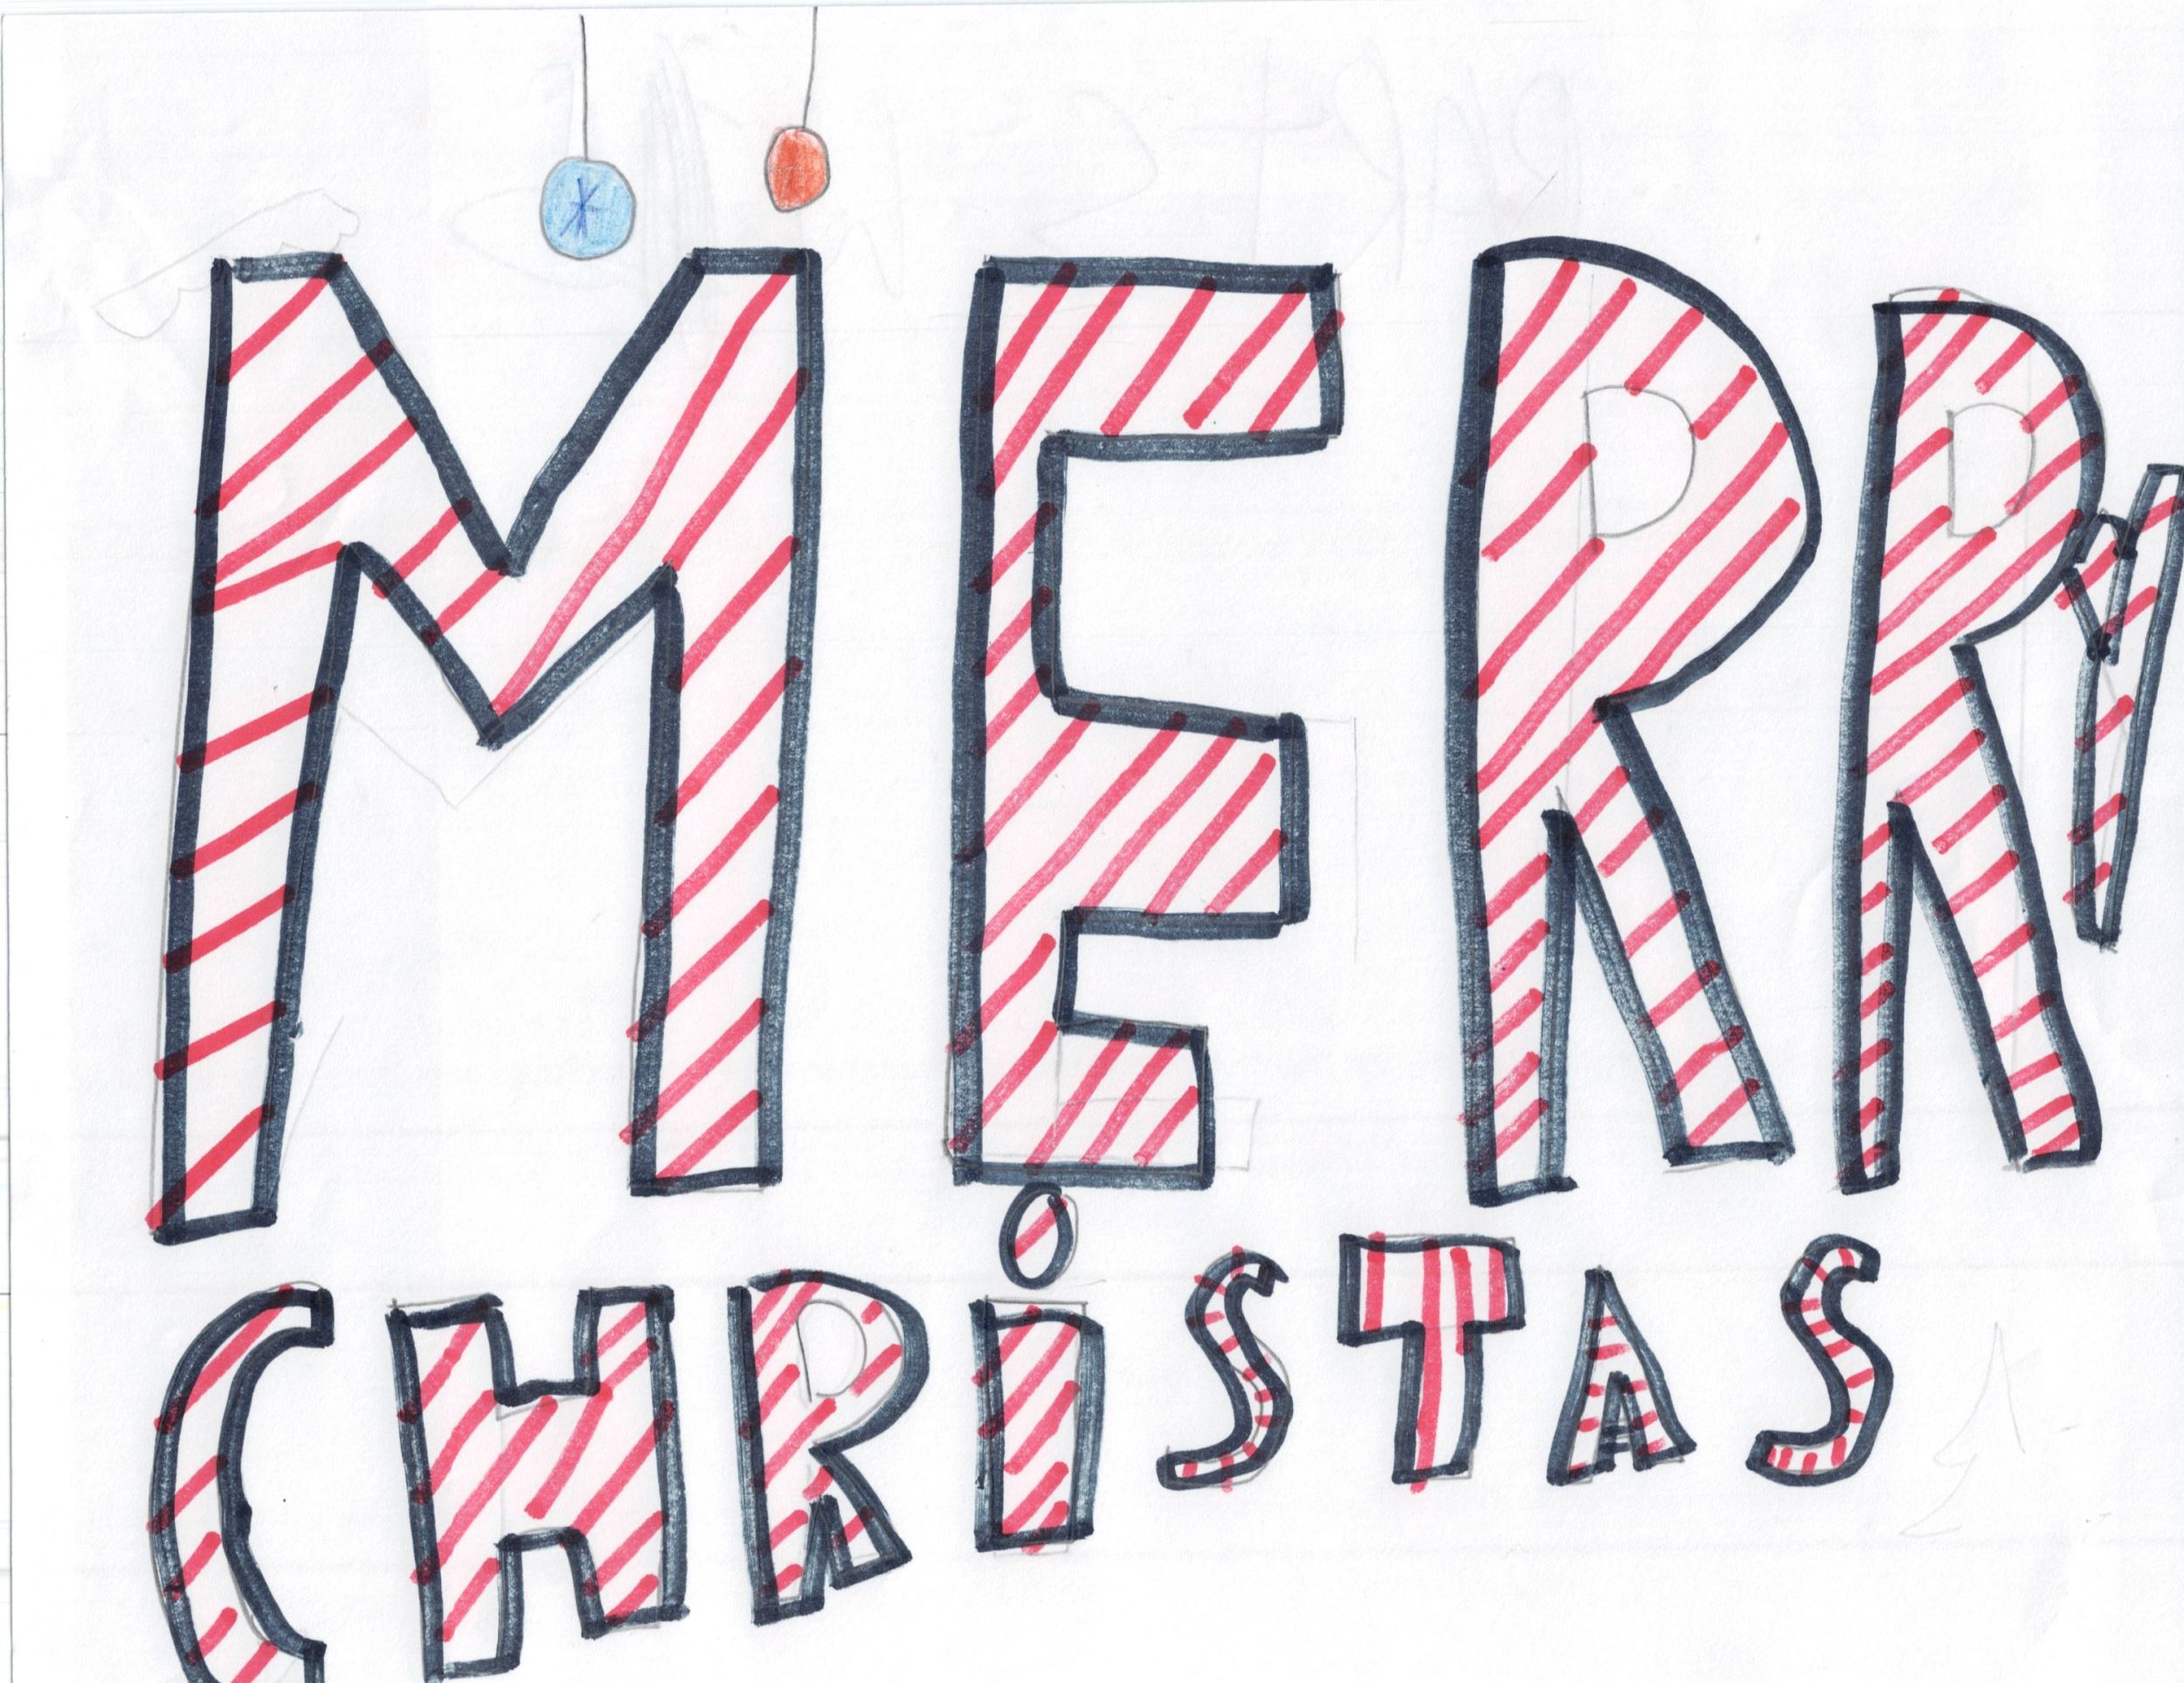 MERRY
CHRiSTAS